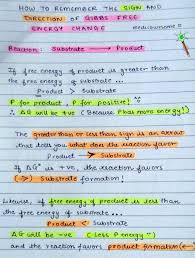 HOW TO REMEMBER THE SIGN AND
DIRECTION OF GIBBS FREE
ENERGY CHANGE
Reaction: Substrate → Product
If free energy of product is greater than
the free energy of substrate...
Product > Substrate
P for product, P for positive!
∴ ΔG will be +ve (Because P has more energy!)
The greater than or less than sign is an arrow
that tells you what does the reaction favor
Product → Substrate
If ΔG° is +ve, the reaction favors
Substrate formation!
Likewise, if free energy of product is less than
the free energy of substrate...
Product < Substrate
ΔG will be -ve (less P energy)
and the reaction favors product formation (←)